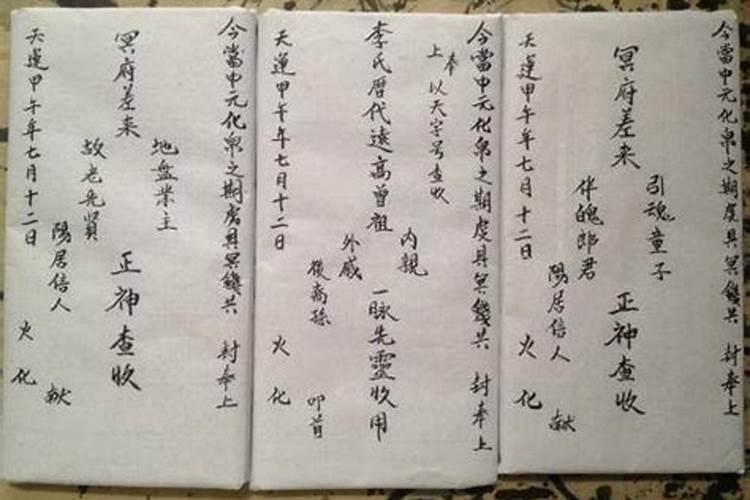 今當中元化帛之期虔具冥錢共 封奉上
引魂童子
冥府差来 正神查收
伴魄郎君
陽居信人 献
天運甲午年七月十二日 火化
今當中元化帛之期虔具冥錢共 封奉上
奉
上 以天字号查收
內親
李氏歷代遠高曾祖 一脉先靈收用
外戚
後裔孫 叩首
天運甲午年七月十二日 火化
今當中元化帛之期虔具冥錢共 封奉上
地盤業主
冥府差来 正神查收
故老先賢
陽居信人 献
天運甲午年七月十二日 火化